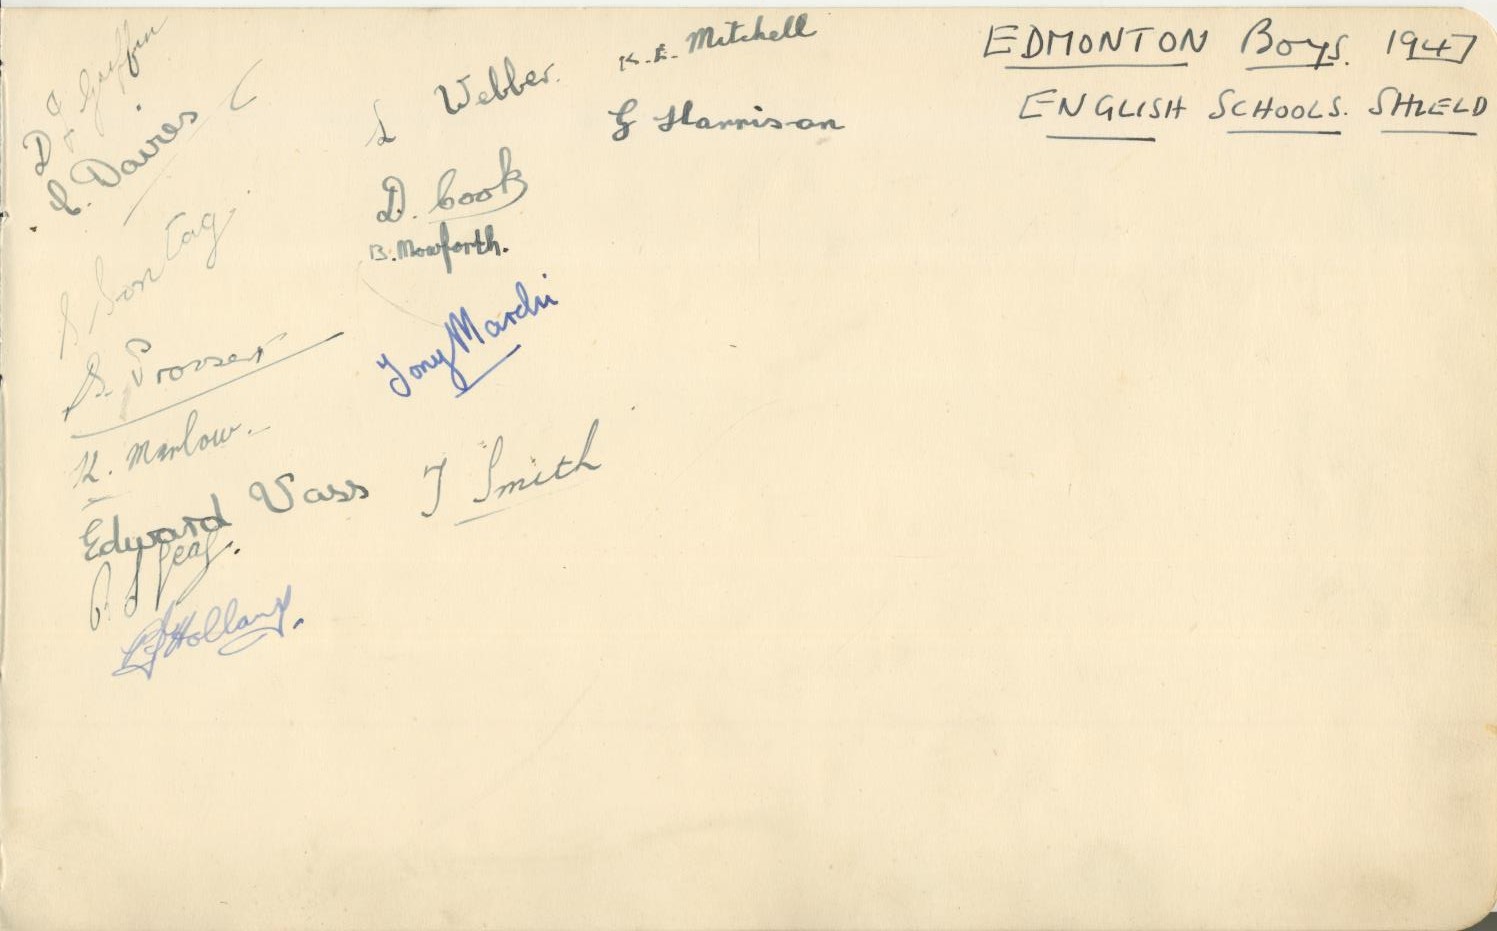 EDMONTON Boys. 1947
ENGLISH SCHOOLS. SHIELD
D Griffin
Davies
S Sontag
S. Prosser
K. Marlow.
Edward Vass
Holland.
L Webber.
D. Cook
B. Mowforth.
Tony Marchi
T Smith
K. E. Mitchell
G Harrison